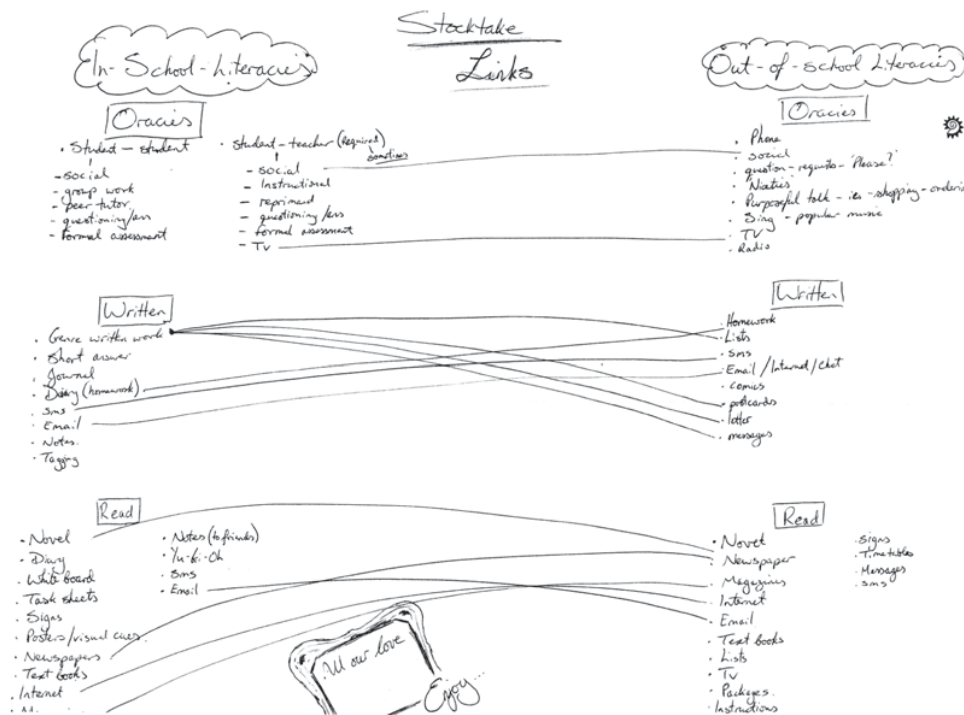 Stocktake
Links
In-School-Literacies
Oracies
• Student – student
- social
- group work
- peer-tutor
- questioning/ans
- formal assessment
• Student-teacher (Required)
sometimes
- social
- Instructional
- reprimand
- questioning/ans
- formal assessment
- TV
Out-of-school Literacies
Oracies
• Phone
• social
• question-requests-'Please?'
• Niceties
• Purposeful talk - ies - shopping - ordering
• Sing - popular music
• TV
• Radio
Written
• Genre written work
• Short answer
• Journal
• Diary (homework)
• Sms
• Email
• Notes.
• Tagging
Written
• Homework
• Lists
• sms
• Email/Internet/Chat
• comics
• postcards
• letter
• messages
Read
• Novel
• Diary
• White board
• Task sheets
• Signs
• Posters/visual cues.
• Newspapers
• Text books
• Internet
• Notes (to friends)
• Yu-Gi-Oh
• Sms
• Email
All our love
Enjoy...
Read
• Novel
• Newspaper
• Magazines
• Internet
• Email
• Text books
• Lists
• Tv
• Packages.
• Instructions
• Signs
• Timetables
• Messages
• sms